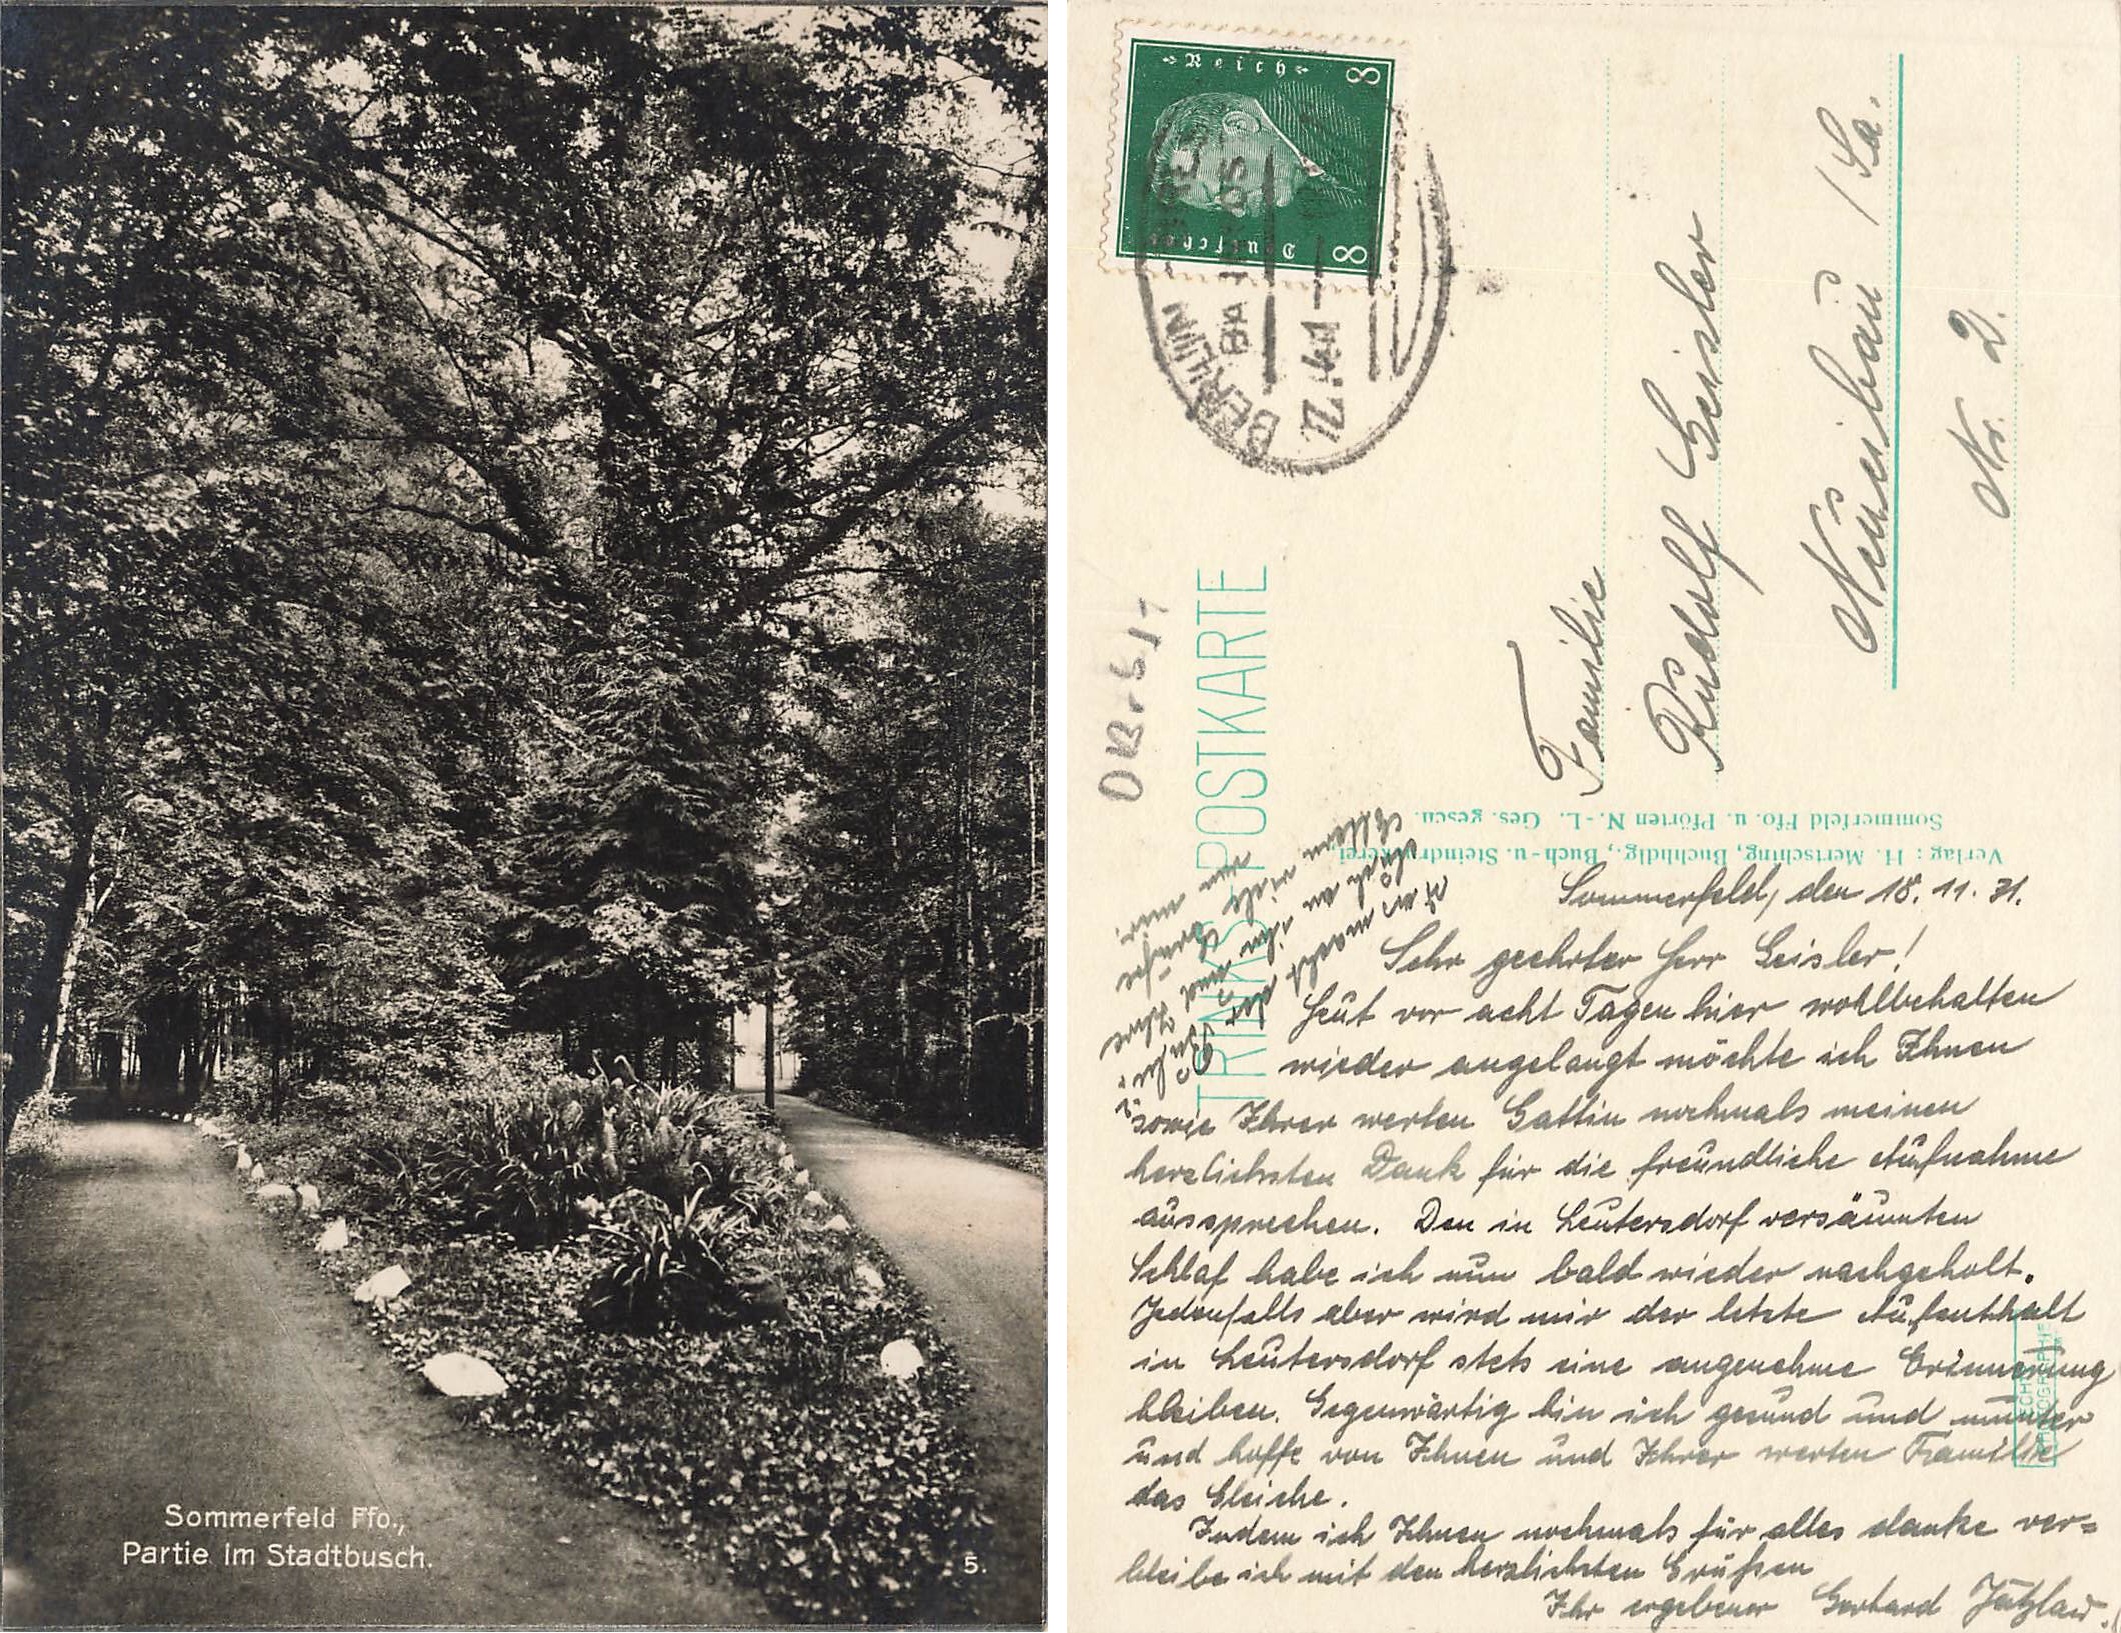 Sommerfeld Ffo.,
Partie im Stadtbusch.
5.
Deutsches Reich
8 8
BERLIN
TRINKS-POSTKARTE
Familie
Rudolf Geisler
Neueibau / Sa.
Nr. 2.
Verlag: H. Mertsching, Buchhdlg., Buch- u. Steindruckerei,
Sommerfeld Ffo. u. Pförten N.-L. Ges. gesch.
Sommerfeld, den 18. 11. 31.
Sehr geehrter Herr Geisler!
Heut vor acht Tagen hier wohlbehalten
wieder angelangt möchte ich Ihnen
sowie Ihrer werten Gattin nochmals meinen
herzlichsten Dank für die freundliche Aufnahme
aussprechen. Den in Leutersdorf versäumten
Schlaf habe ich nun bald wieder nachgeholt.
Jedenfalls aber wird mir der letzte Aufenthalt
in Leutersdorf stets eine angenehme Erinnerung
bleiben. Gegenwärtig bin ich gesund und munter
und hoffe von Ihnen und Ihrer werten Familie
das Gleiche.
Indem ich Ihnen nochmals für alles danke ver=
bleibe ich mit den herzlichsten Grüßen
Ihr ergebener Gerhard
Was macht der
an ihn und Ihre
Eltern viele Grüße
von mir.
ECHTE
PHOTOGRAPHIE